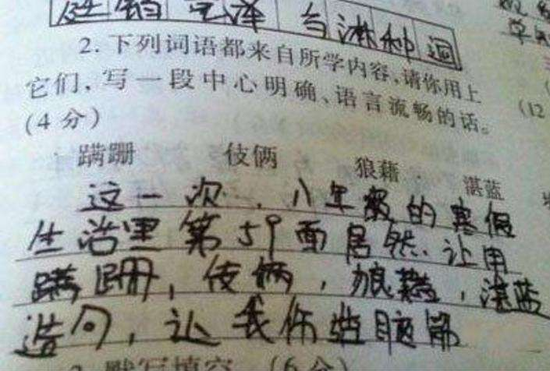 2.下列词语都来自所学内容,请你用上
它们,写一段中心明确、语言流畅的话。
(4分)
蹒跚 伎俩 狼藉 湛蓝
这一次,八年级的寒假
生活里第59面居然让用
蹒跚,伎俩,狼藉,湛蓝
造句,让我伤脑筋
3.默写填空。(6分)
(12